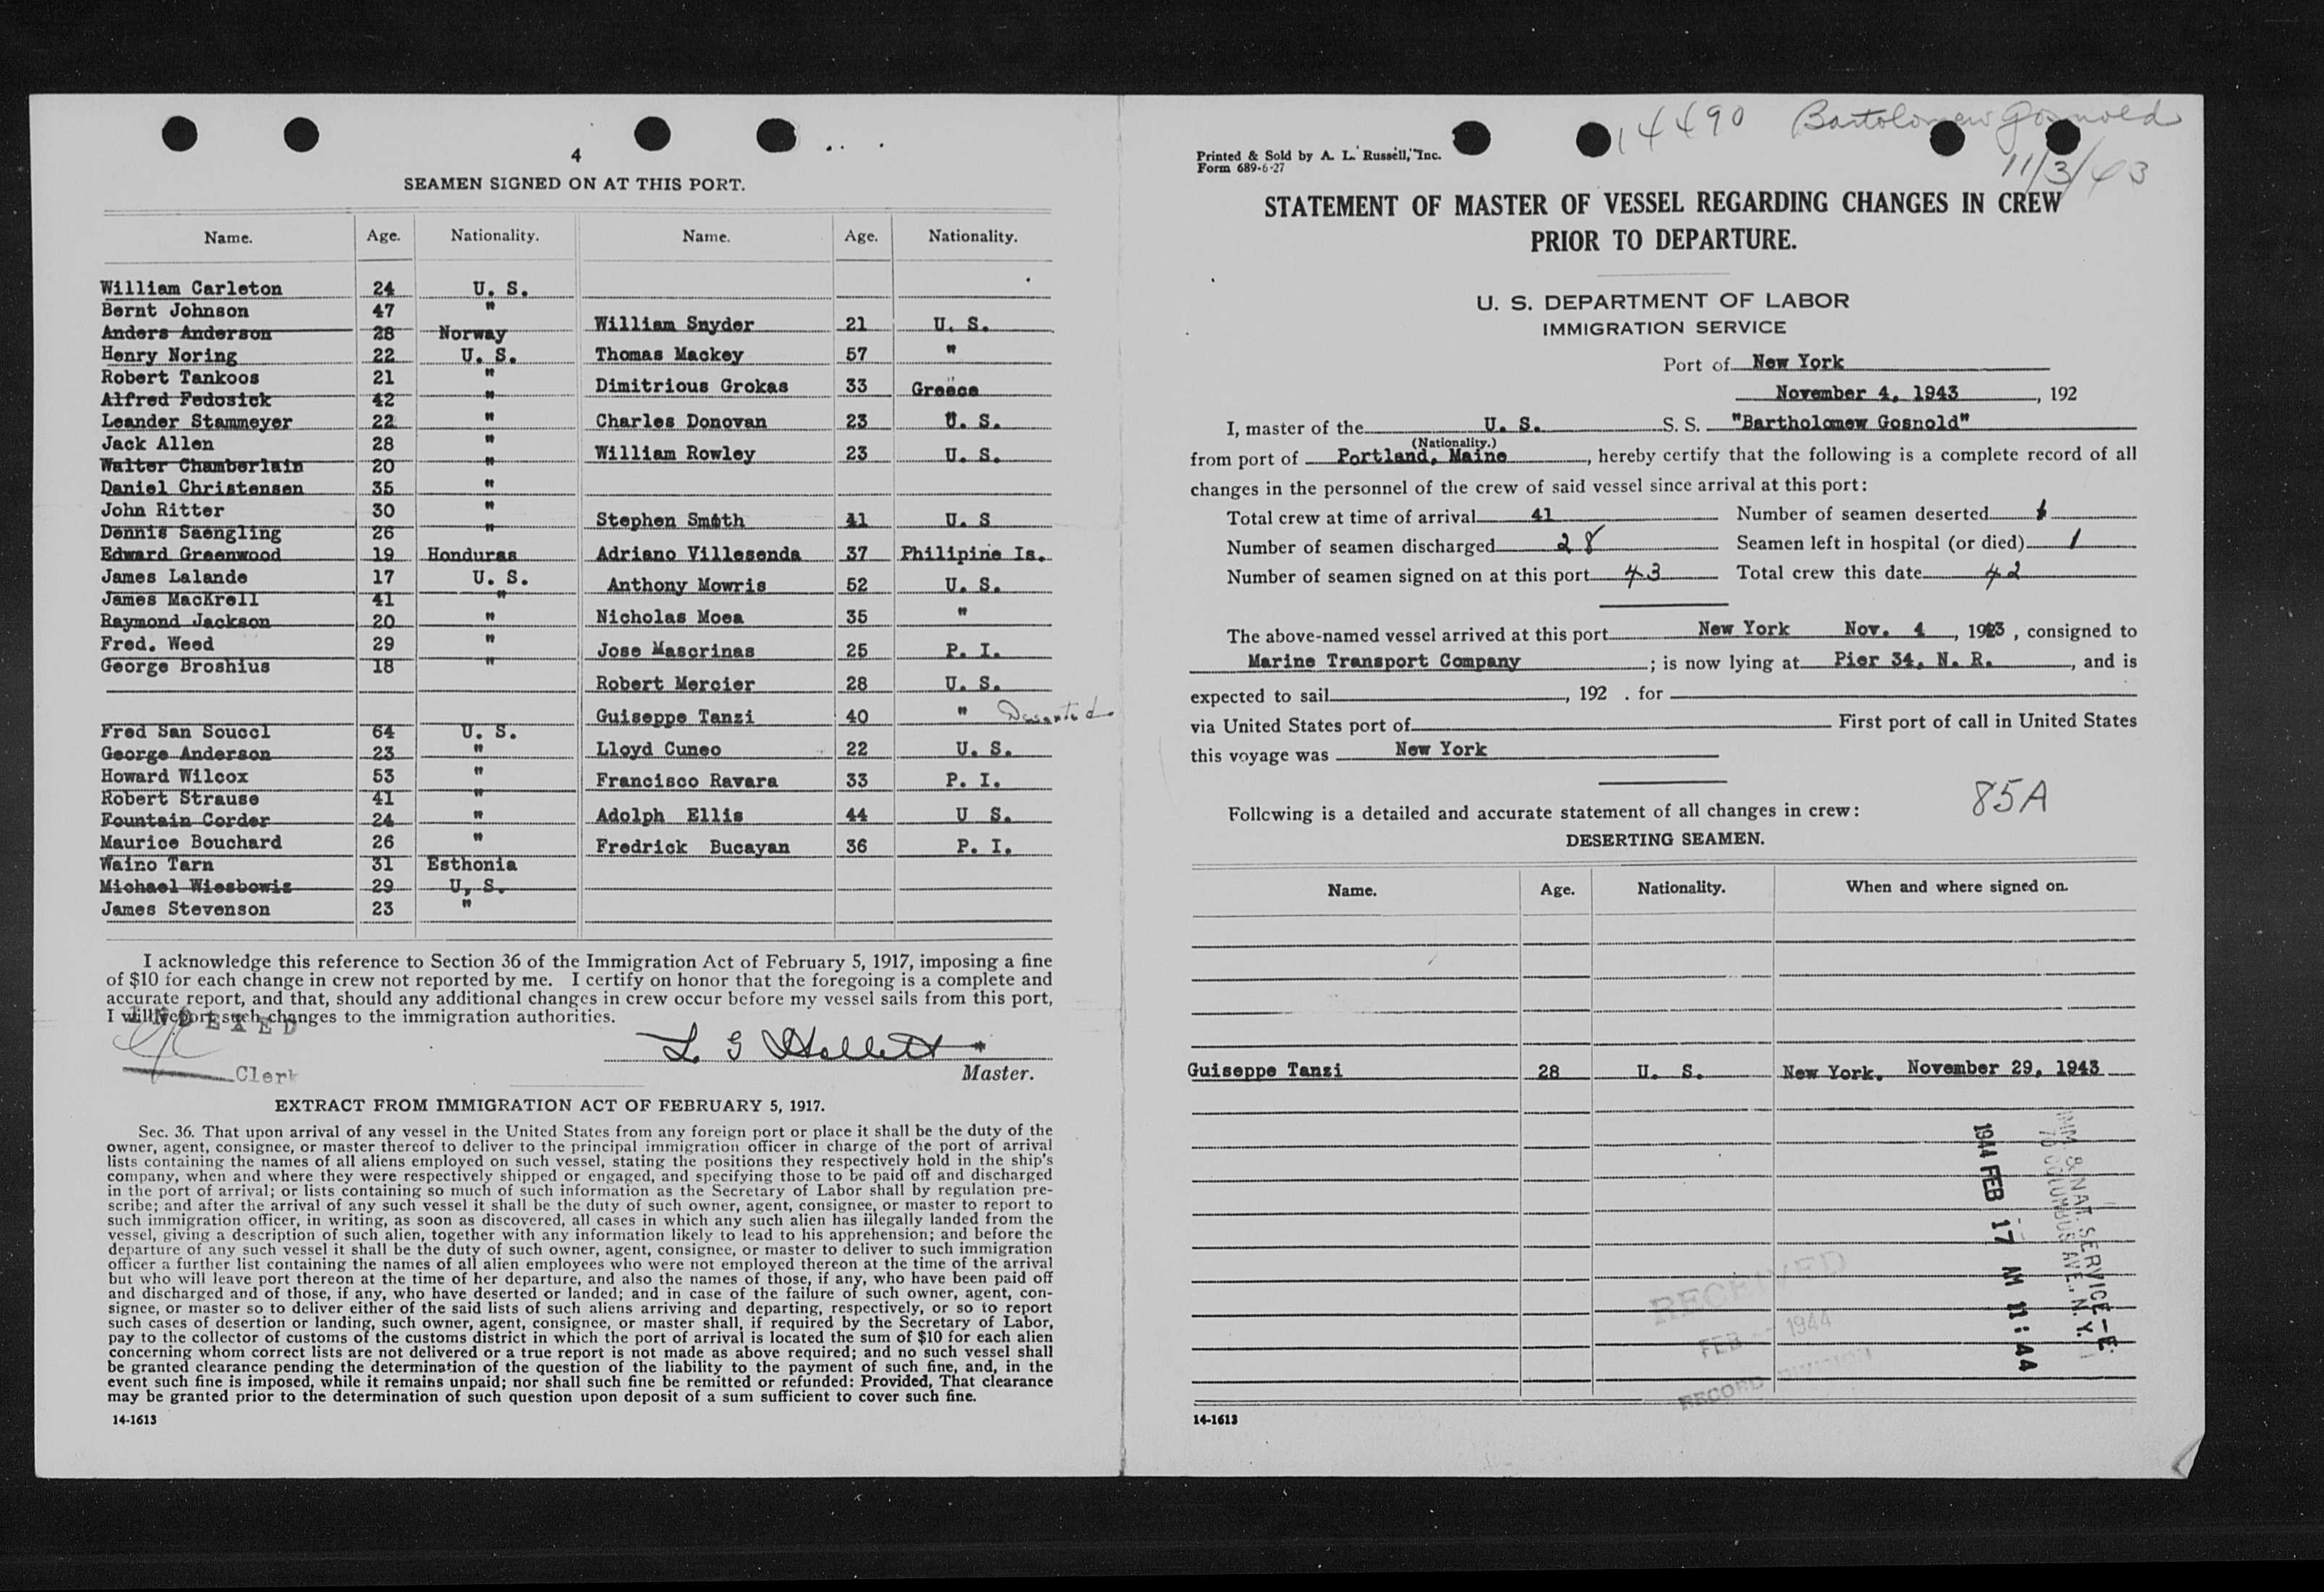 4
SEAMEN SIGNED ON AT THIS PORT.
Name. Age. Nationality. Name. Age. Nationality.
William Carleton 24 U. S.
Bernt Johnson 47 "
Anders Anderson 28 Norway
Henry Noring 22 U. S.
Robert Tankoos 21 "
Alfred Fedosick 42 "
Leander Stammeyer 22 "
Jack Allen 28 "
Walter Chamberlain 20 "
Daniel Christensen 35 "
John Ritter 30 "
Dennis Saengling 26 "
Edward Greenwood 19 Honduras
James Lalande 17 U. S.
James MacKrell 41 "
Raymond Jackson 20 "
Fred. Weed 29 "
George Broshius 18 "
Fred San Soucci 64 U. S.
George Anderson 23 "
Howard Wilcox 53 "
Robert Strause 41 "
Fountain Corder 24 "
Maurice Bouchard 26 "
Waino Tarn 31 Esthonia
Michael Wiesbowis 29 U, S.
James Stevenson 23 "
William Snyder 21 U. S.
Thomas Mackey 57 "
Dimitrious Grokas 33 Greece
Charles Donovan 23 U. S.
William Rowley 23 U. S.
Stephen Smith 41 U. S
Adriano Villesenda 37 Philipine Is.
Anthony Mowris 52 U. S.
Nicholas Moea 35 "
Jose Mascrinas 25 P. I.
Robert Mercier 28 U. S.
Guiseppe Tanzi 40 " Deserted
Lloyd Cuneo 22 U. S.
Francisco Ravara 33 P. I.
Adolph Ellis 44 U S.
Fredrick Bucayan 36 P. I.
I acknowledge this reference to Section 36 of the Immigration Act of February 5, 1917, imposing a fine
of $10 for each change in crew not reported by me. I certify on honor that the foregoing is a complete and
accurate report, and that, should any additional changes in crew occur before my vessel sails from this port,
I will report such changes to the immigration authorities.
INDEXED
L G Hallett
Clerk
Master.
EXTRACT FROM IMMIGRATION ACT OF FEBRUARY 5, 1917.
Sec. 36. That upon arrival of any vessel in the United States from any foreign port or place it shall be the duty of the
owner, agent, consignee, or master thereof to deliver to the principal immigration officer in charge of the port of arrival
lists containing the names of all aliens employed on such vessel, stating the positions they respectively hold in the ship's
company, when and where they were respectively shipped or engaged, and specifying those to be paid off and discharged
in the port of arrival; or lists containing so much of such information as the Secretary of Labor shall by regulation pre-
scribe; and after the arrival of any such vessel it shall be the duty of such owner, agent, consignee, or master to report to
such immigration officer, in writing, as soon as discovered, all cases in which any such alien has illegally landed from the
vessel, giving a description of such alien, together with any information likely to lead to his apprehension; and before the
departure of any such vessel it shall be the duty of such owner, agent, consignee, or master to deliver to such immigration
officer a further list containing the names of all alien employees who were not employed thereon at the time of the arrival
but who will leave port thereon at the time of her departure, and also the names of those, if any, who have been paid off
and discharged and of those, if any, who have deserted or landed; and in case of the failure of such owner, agent, con-
signee, or master so to deliver either of the said lists of such aliens arriving and departing, respectively, or so to report
such cases of desertion or landing, such owner, agent, consignee, or master shall, if required by the Secretary of Labor,
pay to the collector of customs of the customs district in which the port of arrival is located the sum of $10 for each alien
concerning whom correct lists are not delivered or a true report is not made as above required; and no such vessel shall
be granted clearance pending the determination of the question of the liability to the payment of such fine, and, in the
event such fine is imposed, while it remains unpaid; nor shall such fine be remitted or refunded: Provided, That clearance
may be granted prior to the determination of such question upon deposit of a sum sufficient to cover such fine.
14-1613
14490 Bartolomew Gosnold
11/3/43
Printed & Sold by A. L. Russell, Inc.
Form 689-6-27
STATEMENT OF MASTER OF VESSEL REGARDING CHANGES IN CREW
PRIOR TO DEPARTURE.
U. S. DEPARTMENT OF LABOR
IMMIGRATION SERVICE
Port of New York
November 4, 1943, 192
I, master of the U. S. S. S. "Bartholomew Gosnold"
(Nationality.)
from port of Portland, Maine, hereby certify that the following is a complete record of all
changes in the personnel of the crew of said vessel since arrival at this port:
Total crew at time of arrival 41 Number of seamen deserted 1
Number of seamen discharged 28 Seamen left in hospital (or died) 1
Number of seamen signed on at this port 43 Total crew this date 42
The above-named vessel arrived at this port New York Nov. 4, 1943, consigned to
Marine Transport Company; is now lying at Pier 34, N. R., and is
expected to sail, 192 . for
via United States port of First port of call in United States
this voyage was New York
85A
Following is a detailed and accurate statement of all changes in crew:
DESERTING SEAMEN.
Name. Age. Nationality. When and where signed on.
Guiseppe Tanzi 28 U. S. New York, November 29, 1943
IMM & NAT. SERVICE-E
70 COLUMBUS AVE., N. Y.
1944 FEB 17 AM 11:44
RECEIVED
FEB 1944
RECORD DIVISION
14-1613